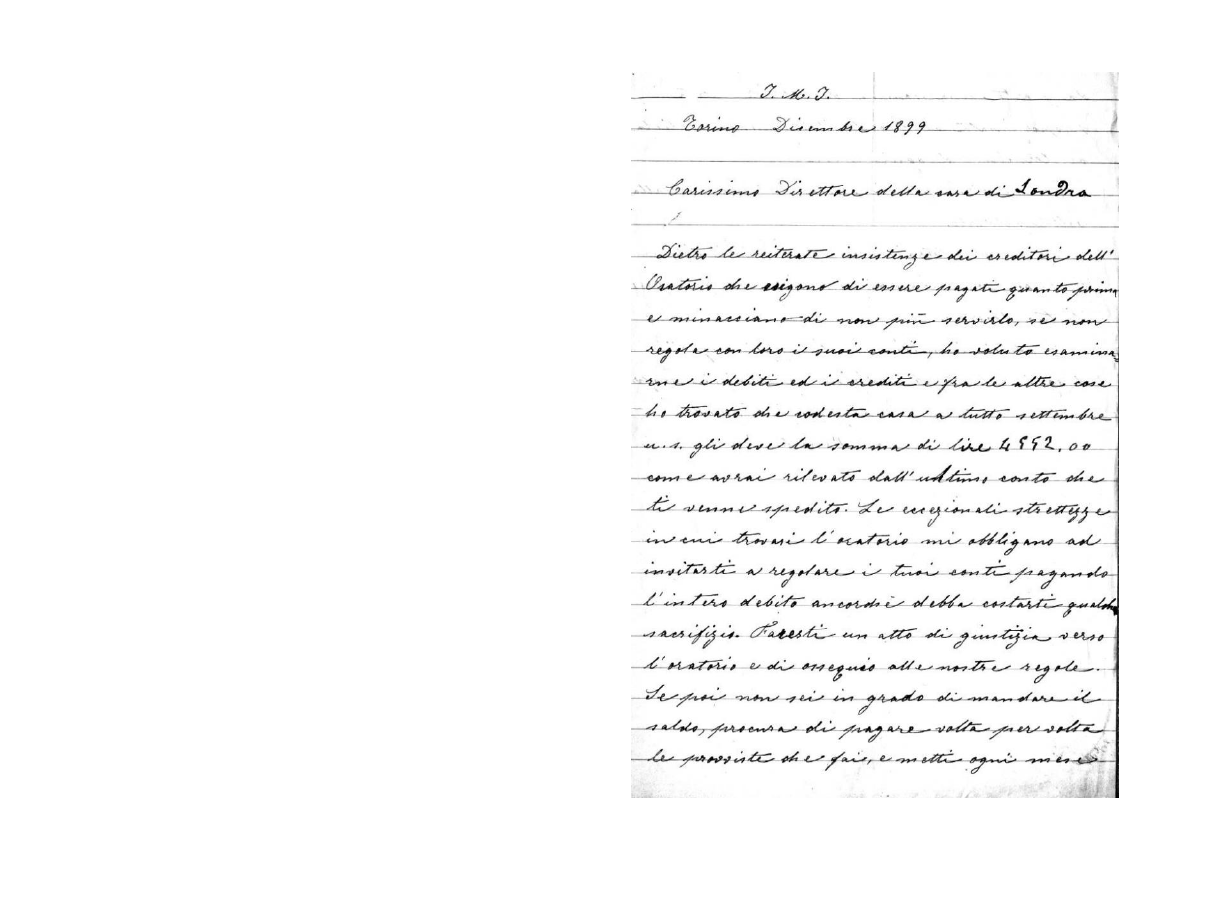 J. M. J.
Torino Dicembre 1899
Carissimo Direttore della casa di Londra
Dietro le reiterate insistenze dei creditori dell'
Oratorio che esigono di essere pagati quanto prima
e minacciano di non più servirlo, se non
regola con loro i suoi conti, ho voluto esamina=
rne i debiti ed i crediti e fra le altre cose
ho trovato che codesta casa a tutto settembre
u. s. gli deve la somma di lire 4992.00
come avrai rilevato dall'ultimo conto che
ti venne spedito. Le eccezionali strettezze
in cui trovasi l'oratorio mi obbligano ad
invitarti a regolare i tuoi conti pagando
l'intero debito ancorchè debba costarti qualche
sacrifizio. Faresti un atto di giustizia verso
l'oratorio e di ossequio alle nostre regole.
Se poi non sei in grado di mandare il
saldo, procura di pagare volta per volta
le provviste che fai, e metti ogni mese